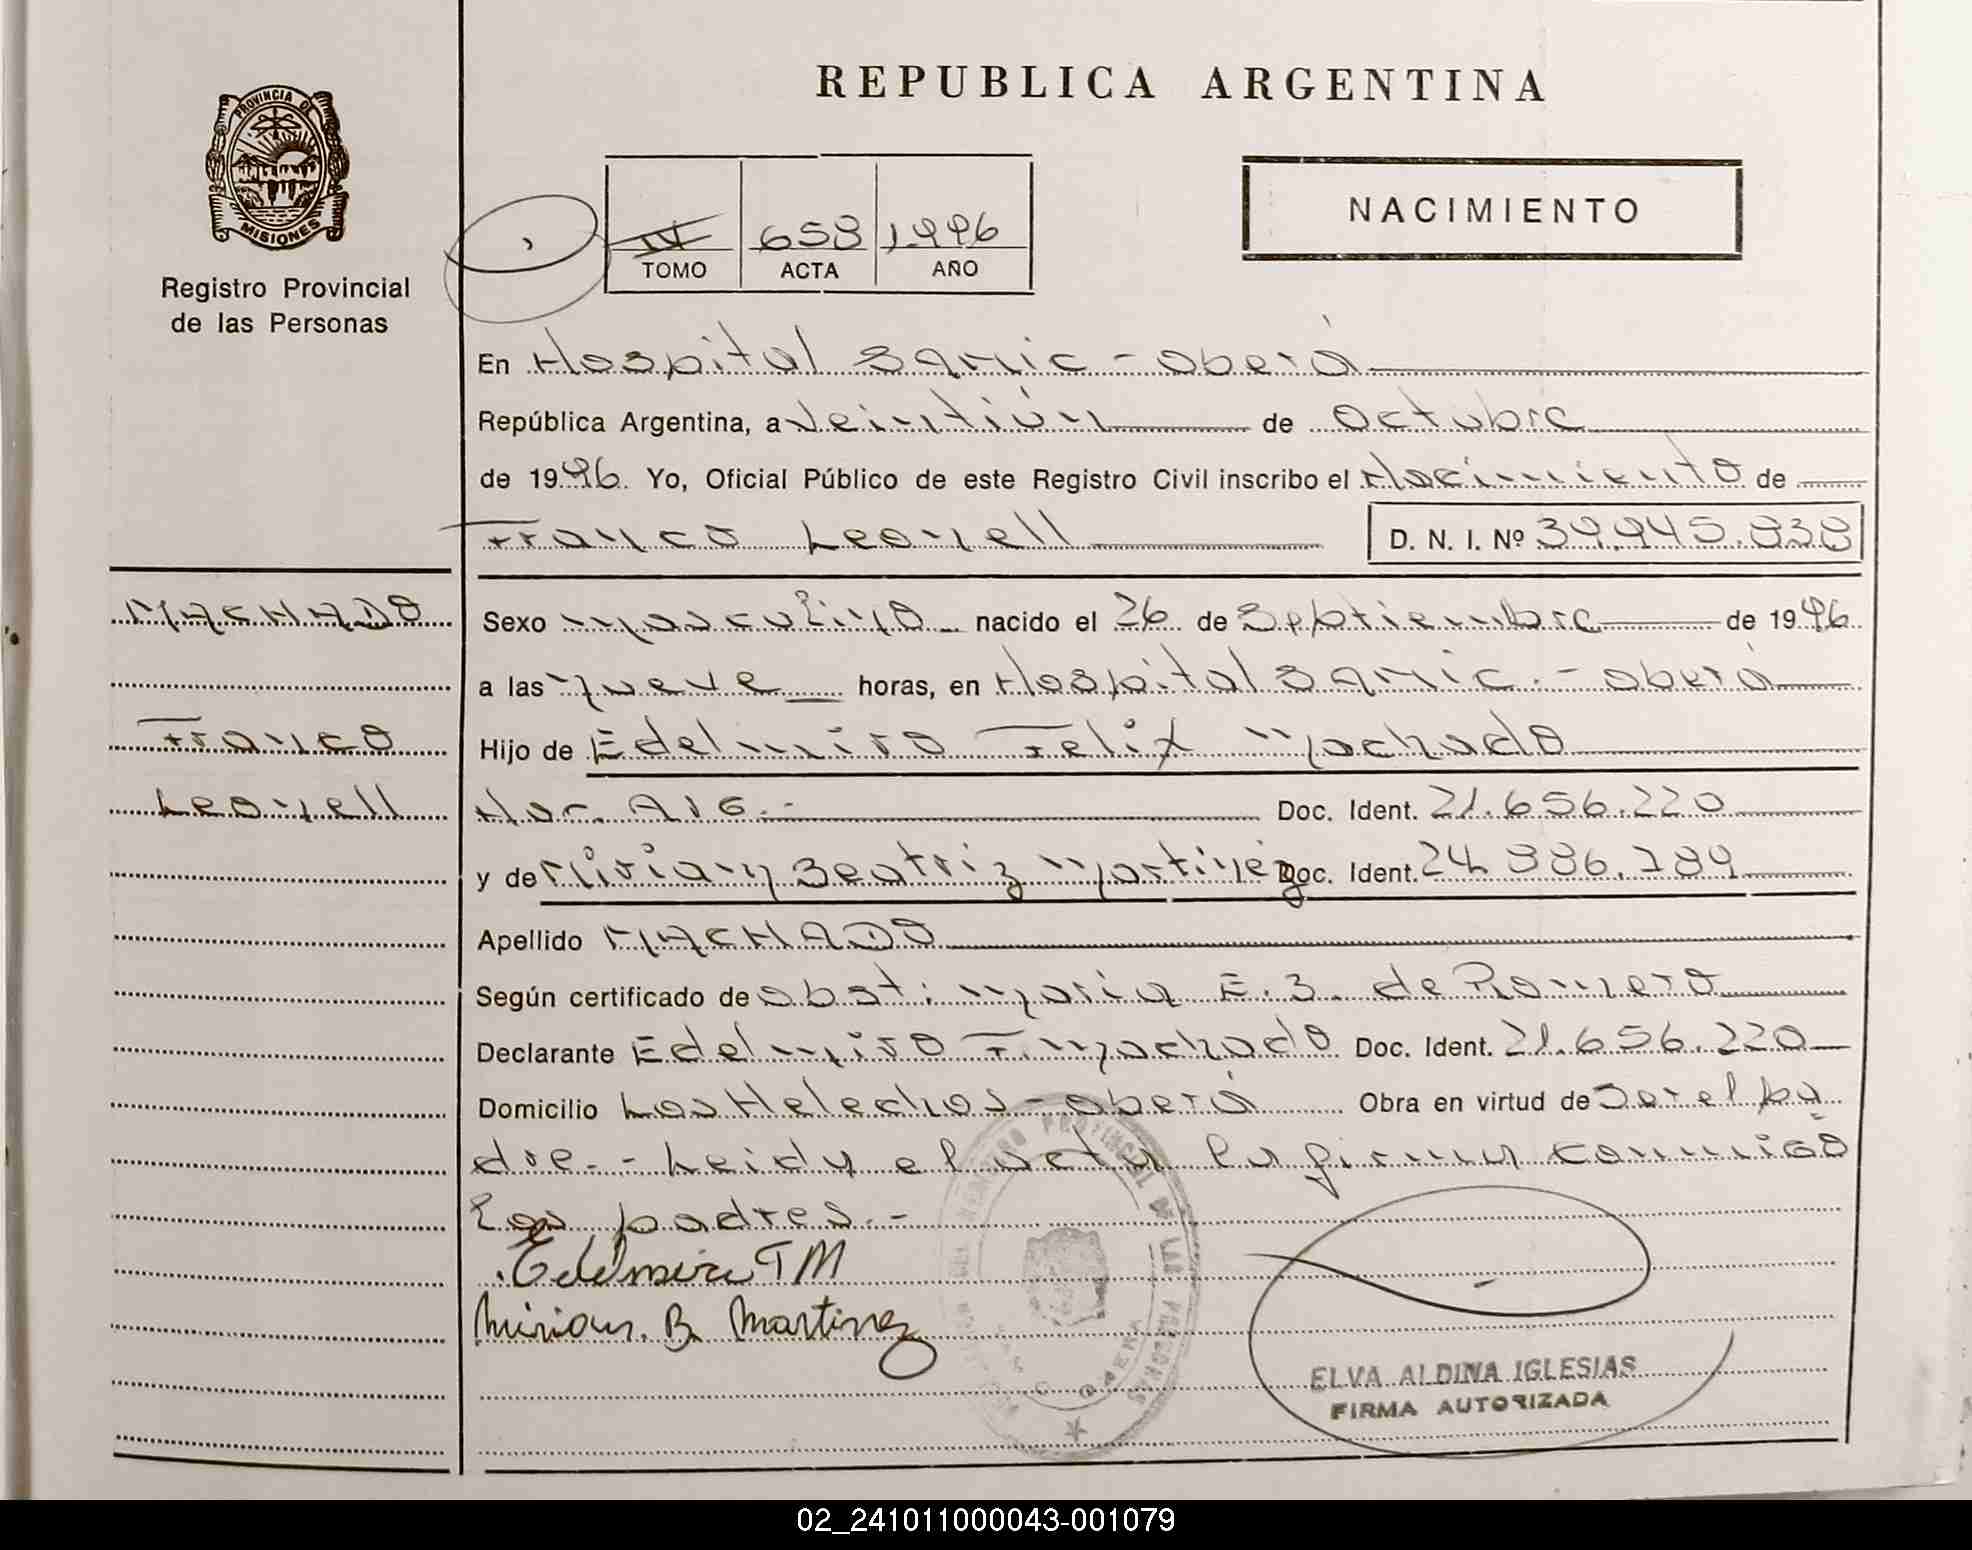 REPUBLICA ARGENTINA
PROVINCIA DE
MISIONES
Registro Provincial
de las Personas
IV 658 1996
TOMO ACTA AÑO
NACIMIENTO
En Hospital Samic - Oberá
República Argentina, a Veintiún de Octubre
de 1996 Yo, Oficial Público de este Registro Civil inscribo el Nacimiento de
Franco Leonell D. N. I. Nº 39.945.838
MACHADO
Franco
Leonell
Sexo masculino nacido el 26 de Septiembre de 1996
a las nueve horas, en Hospital Samic. - Oberá
Hijo de Edelmiro Felix Machado
Nac. Arg. - Doc. Ident. 21.656.220
y de Miriam Beatriz Martinez Doc. Ident. 24.886.789
Apellido MACHADO
Según certificado de obst: María E. S. de Romero
Declarante Edelmiro F. Machado Doc. Ident. 21.656.220
Domicilio Los Helechos - Oberá Obra en virtud de Ser el pa
dre. - Leida el acta la firman conmigo
los padres. -
Edelmiro F M
Miriam. B. Martinez
PROVINCIAL DE LAS PERSONAS
ELVA ALDINA IGLESIAS
FIRMA AUTORIZADA
02_241011000043-001079